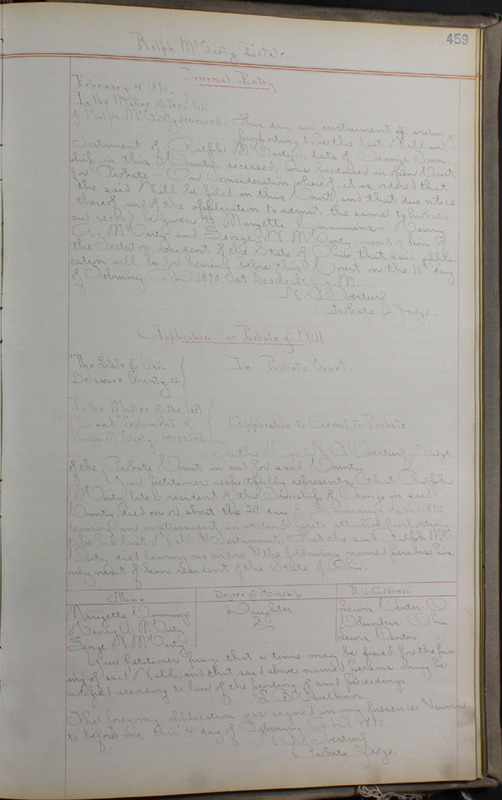 459
Ralph McCarty Estate.
Journal Entry
February 4" 1890.
In the Matter of the Will
of Ralph McCarty deceased, This day an instrument of writing
purporting to be the last Will and
Testament of Ralph McCarty, late of Orange Town
ship, in this County, deceased, was produced in open Court
for Probate - On Consideration whereof, it is ordered that
the said Will be filed in this Court, and that due notice
thereof, and of the application to admit the same to probate
and record be given to Maryette Cummins - Henry
McCarty and George McCarty next of kin of
the Testator, resident of the State of Ohio, that said appli-
cation will be for hearing before this Court on the 11th day
of February A.D. 1890. at 10 o'clock A.M.
Probate Judge.
Application for Probate of Will
The State of Ohio
Delaware County ss
In Probate Court.
In the Matter of the last
Will and Testament of
Ralph McCarty, deceased
Application to Admit to Probate
To the Hon. Judge
of the Probate Court in and for said County
Your petitioner respectfully represents, that Ralph
McCarty late a resident of the Township of Orange in said
County, died on or about the day of A.D. 1890,
leaving an instrument in writing purporting
to be his last Will & Testament; That the said Ralph Mc
Carty died leaving no widow & the following named persons his
only next of kin resident of the State of Ohio.
Name
Degree of Kinship
P.O. Address
Maryette Cummins
Daughter
Lewis Center O
Henry McCarty
Son
Columbus Ohio
George McCarty
"
Lewis Center
Your petitioner prays that a time may be fixed for the prov
ing of said Will, and that said above named persons may be
notified according to law of the pendency of said proceedings.
The foregoing application was signed in my presence & sworn
to before me, this 4" day of February A.D. 1890.
Probate Judge.